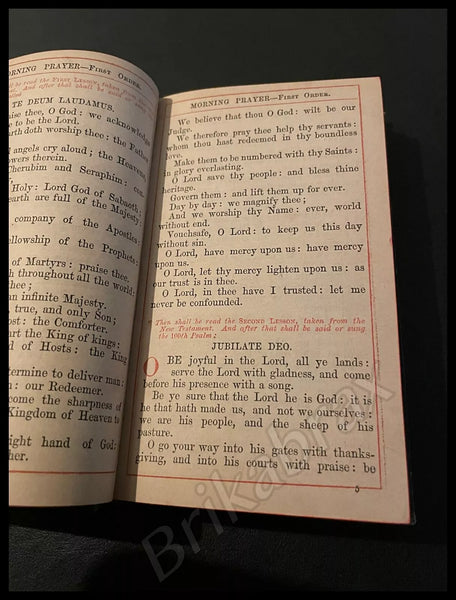 ORNING PRAYER—First Order.
ll be read the First Lesson, taken from
nt. And after that shall be said or sung
TE DEUM LAUDAMUS.
raise thee, O God: we acknowledge
e to be the Lord.
arth doth worship thee: the Father
angels cry aloud; the Heavens,
owers therein.
Cherubim and Seraphim: con-
Holy: Lord God of Sabaoth;
earth are full of the Majesty:
company of the Apostles:
ellowship of the Prophets:
of Martyrs: praise thee.
h throughout all the world:
hee;
an infinite Majesty.
true, and only Son;
ost: the Comforter.
rt the King of kings:
of Hosts: the King
termine to deliver man:
n: our Redeemer.
come the sharpness of
Kingdom of Heaven to
ight hand of God:
her.
MORNING PRAYER—First Order.
We believe that thou O God: wilt be our
Judge.
We therefore pray thee help thy servants:
whom thou hast redeemed in thy boundless
love.
Make them to be numbered with thy Saints:
in glory everlasting.
O Lord save thy people: and bless thine
heritage.
Govern them: and lift them up for ever.
Day by day: we magnify thee;
And we worship thy Name: ever, world
without end.
Vouchsafe, O Lord: to keep us this day
without sin.
O Lord, have mercy upon us: have mercy
upon us.
O Lord, let thy mercy lighten upon us: as
our trust is in thee.
O Lord, in thee have I trusted: let me
never be confounded.
Then shall be read the Second Lesson, taken from the
New Testament. And after that shall be said or sung
the 100th Psalm;
JUBILATE DEO.
O BE joyful in the Lord, all ye lands:
serve the Lord with gladness, and come
before his presence with a song.
Be ye sure that the Lord he is God: it is
he that hath made us, and not we ourselves:
we are his people, and the sheep of his
pasture.
O go your way into his gates with thanks-
giving, and into his courts with praise: be
5
Brikabrak